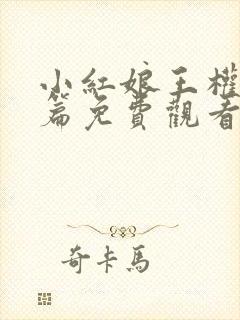 小紅娘王權
篇免費觀看
奇卡馬